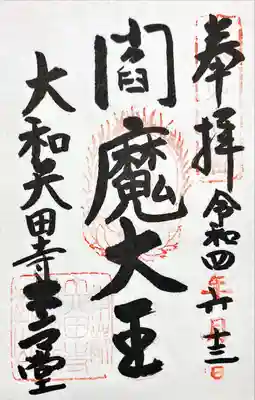 奉拝 令和四年六月十三日
閻魔大王
大和矢田寺 堂